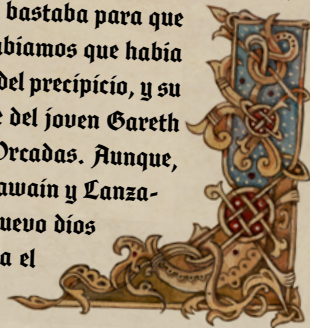 bastaba para que
abiamos que habia
del precipicio, y su
e del joven Gareth
Orcadas. Aunque,
awain y Lanza-
uevo dios
a el